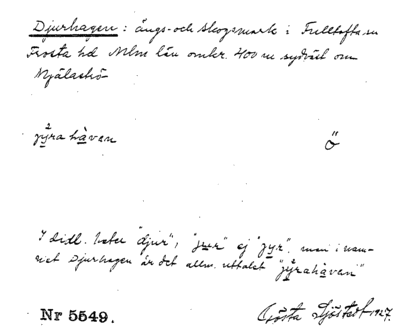 Djurhagen: ängs- och skogsmark i Fulltofta sn
Frosta hd Mlm län omkr. 400 m sydväst om
Mjälashö
jy̆rahàvan ö
I dial. heter "djur", "jur" ej "jyr" men i nam-
net Djurhagen är det allm. uttalet "jy̆rahàvan"
Nr 5549. Gösta Sjöstedt 1927.